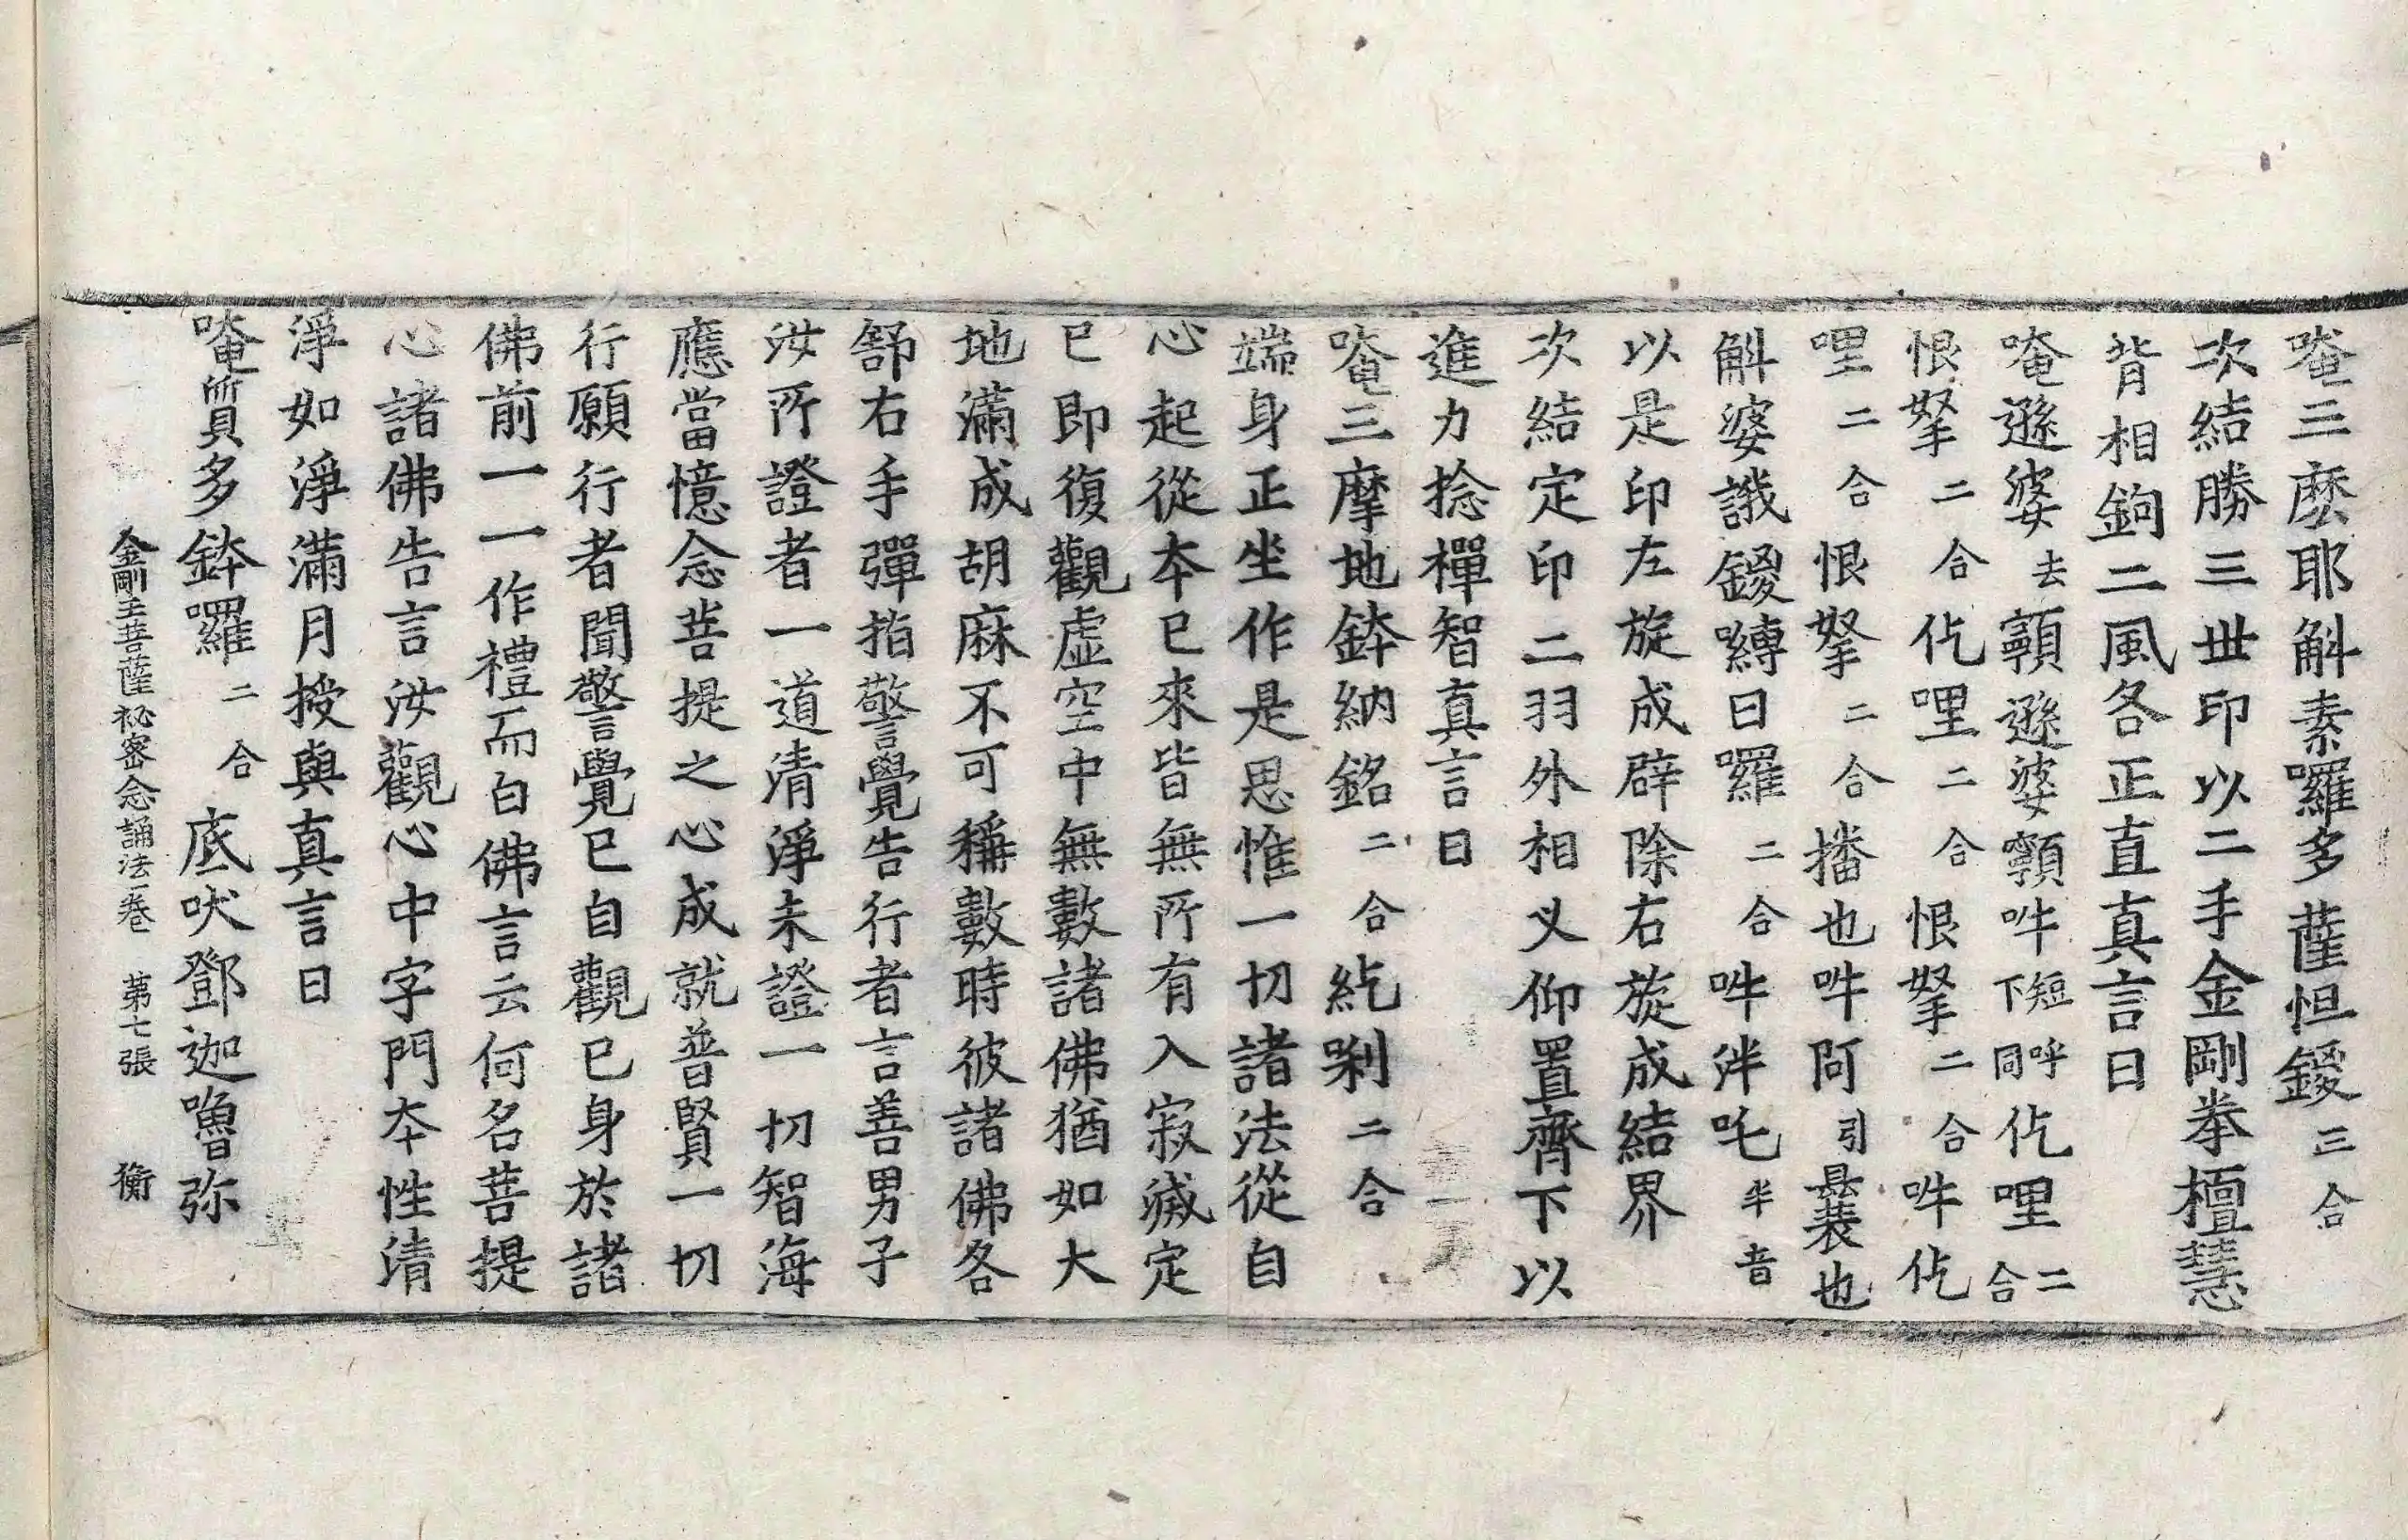 唵三麽耶斛素囉多薩怛鑁三合
次結勝三世印以二手金剛拳檀慧
背相鉤二風各正直真言曰
唵遜婆去顎遜婆顎吽短呼下同仡哩二合
恨拏二合仡哩二合恨拏二合吽仡
哩二合恨拏二合播也吽阿引曩裟也
斛婆誐鑁嚩日囉二合吽泮吒半音
以是印左旋成辟除右旋成結界
次結定印二羽外相叉仰置齊下以
進力捻禪智真言曰
唵三摩地鉢納銘二合紇剎二合
端身正坐作是思惟一切諸法從自
心起從本已來皆無所有入寂滅定
已即復觀虛空中無數諸佛猶如大
地滿成胡麻不可稱數時彼諸佛各
舒右手彈指警覺告行者言善男子
汝所證者一道清淨未證一切智海
應當憶念菩提之心成就普賢一切
行願行者聞警覺已自觀已身於諸
佛前一一作禮而白佛言云何名菩提
心諸佛告言汝觀心中字門本性清
淨如淨滿月授與真言曰
唵質多鉢囉二合底吠鄧迦嚕弥
金剛王菩薩祕密念誦法一卷 第七張 衡